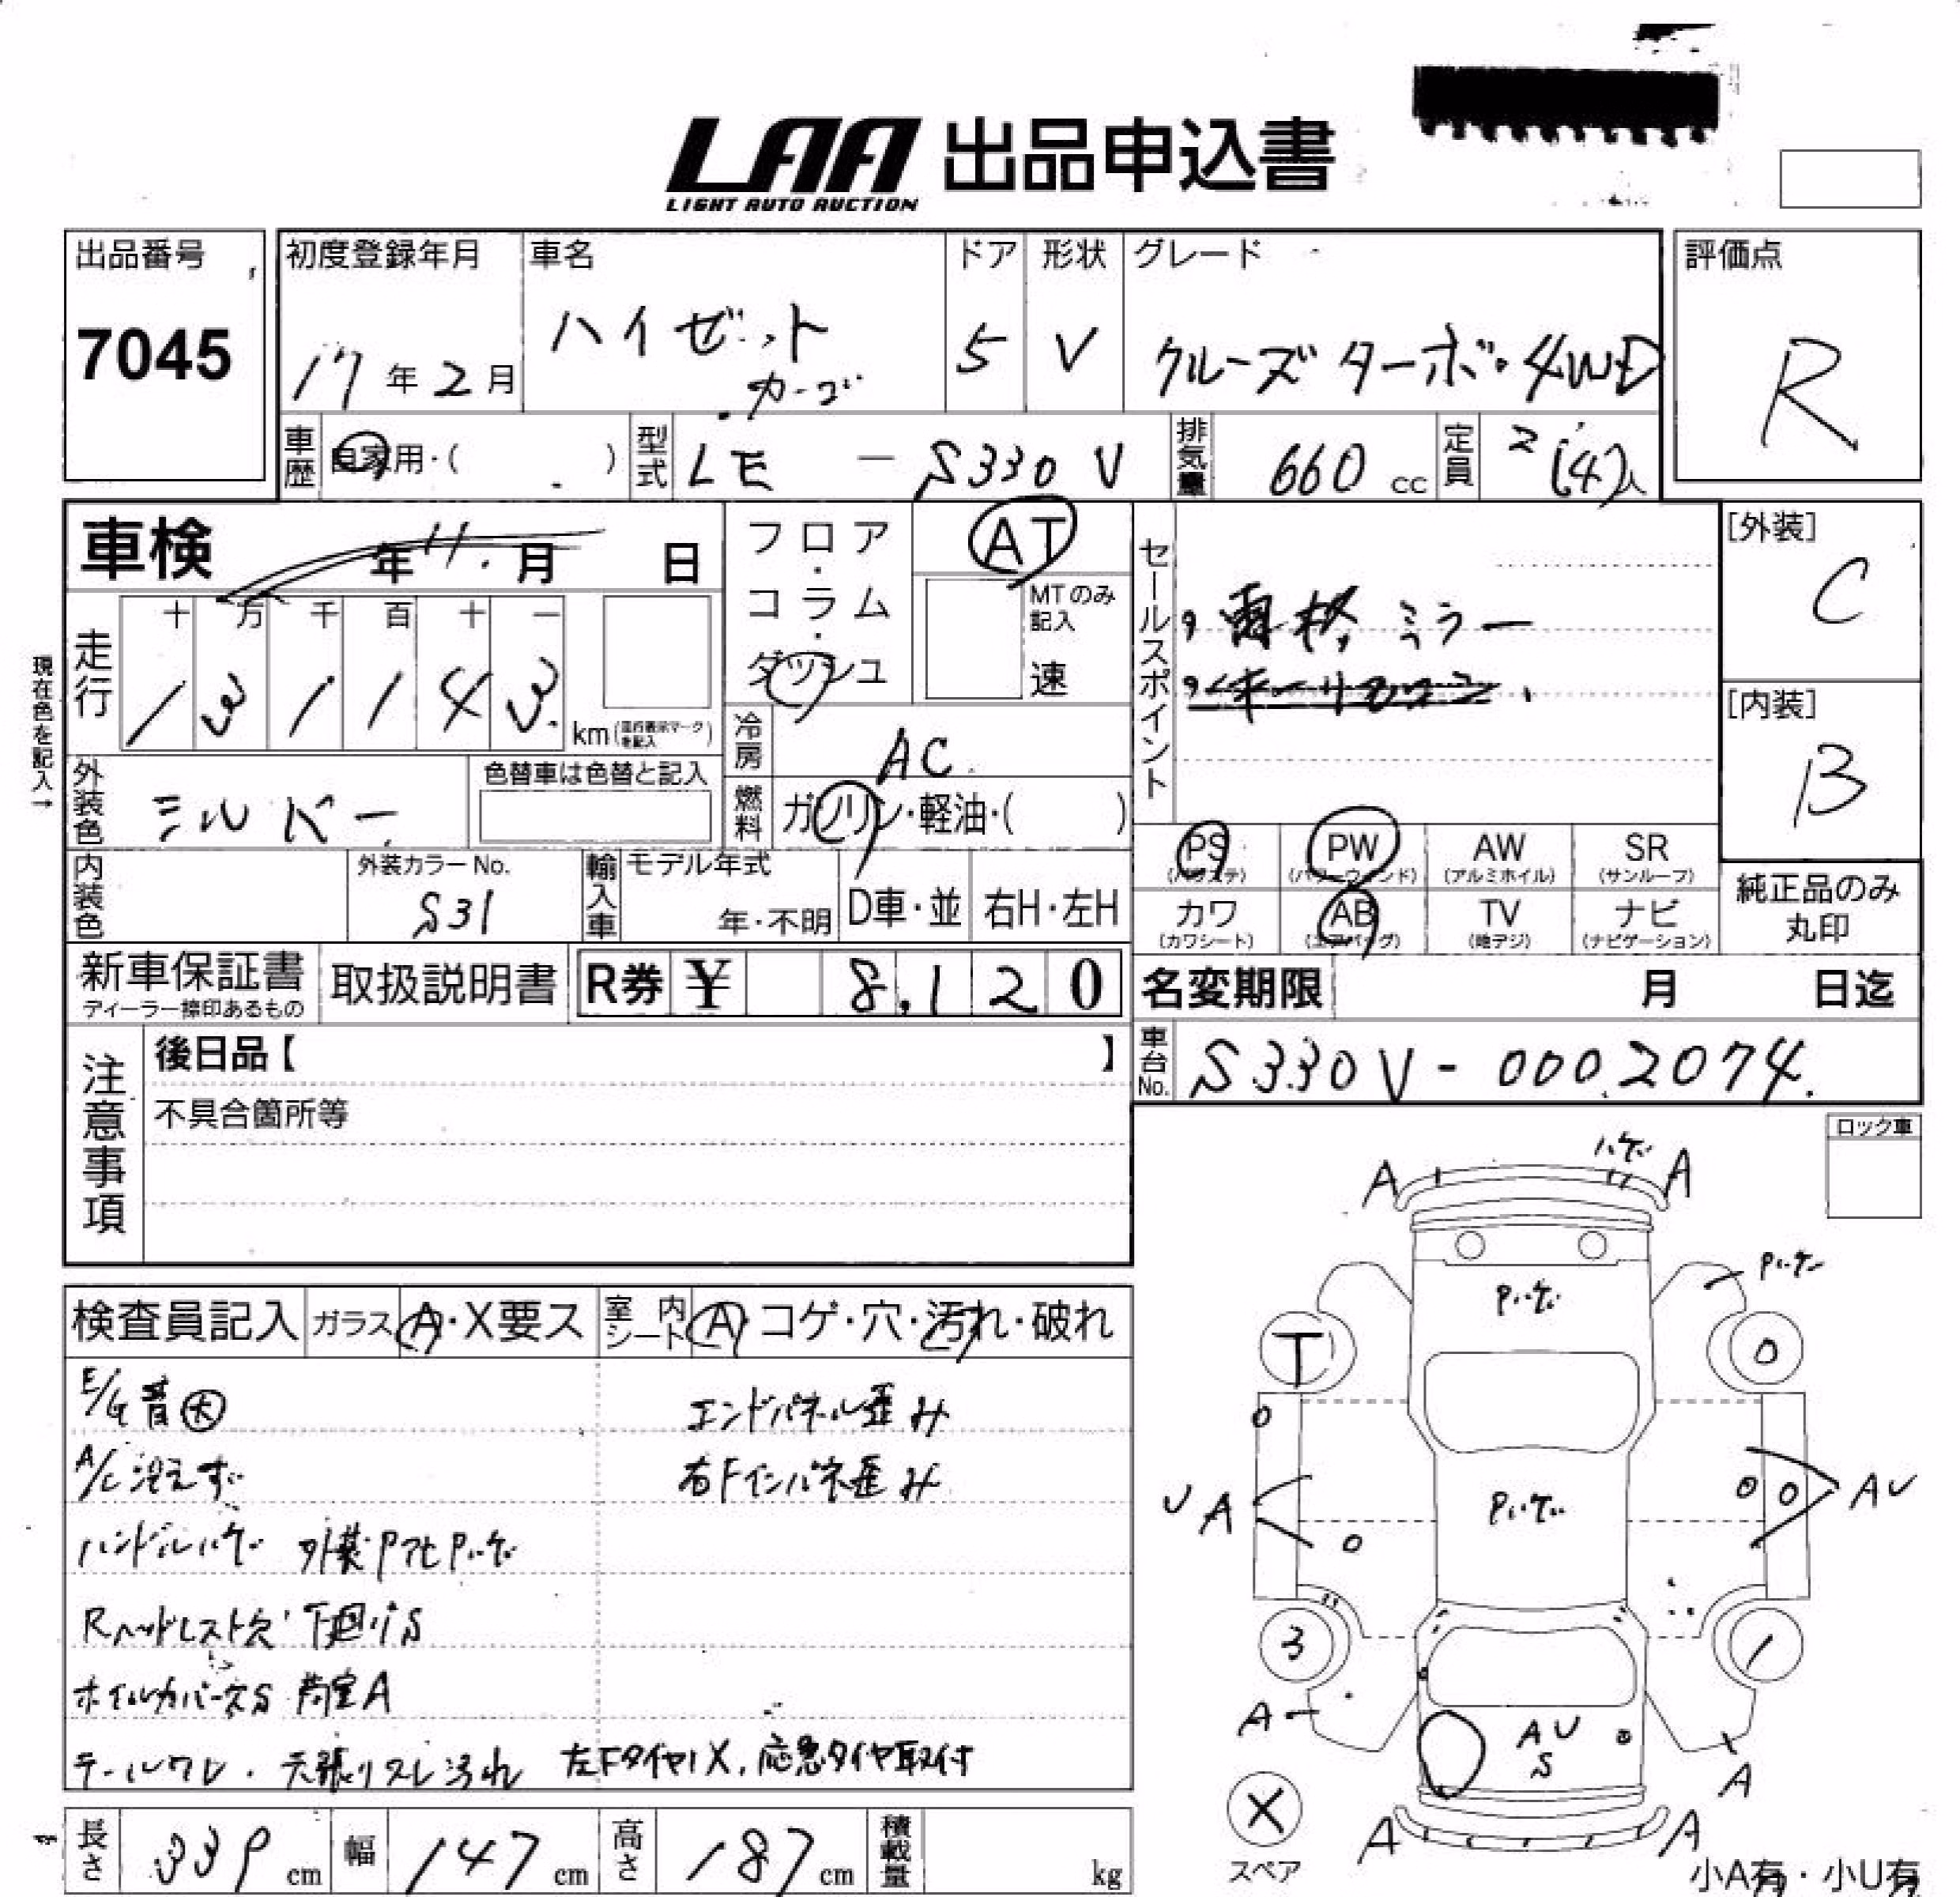 LAA 出品申込書
LIGHT AUTO AUCTION
出品番号
7045
初度登録年月
17年2月
車名
ハイゼット
カーゴ
ドア
5
形状
V
グレード
クルーズターボ・4WD
評価点
R
車歴 自家用・( )
型式 LE - S330V
排気量 660 cc
定員 2(4)人
車検 年 11. 月 日
フロア・コラム・ダッシュ
AT
MTのみ記入
速
セールスポイント
・電格ミラー
・キーレスエンジン
[外装]
C
[内装]
B
現在色を記入→
走行
十 万 千 百 十 一
1 3 1 1 4 3
km(走行表示マークを記入)
冷房 AC
外装色 シルバー
色替車は色替と記入
燃料 ガソリン・軽油・( )
PS (パワステ)
PW (パワーウィンド)
AW (アルミホイル)
SR (サンルーフ)
カワ (カワシート)
AB (エアバッグ)
TV (地デジ)
ナビ (ナビゲーション)
純正品のみ
丸印
内装色
外装カラーNo.
S31
輸入車
モデル年式
年・不明
D車・並
右H・左H
新車保証書
ディーラー捺印あるもの
取扱説明書
R券 ¥ 8,120
名変期限 月 日迄
車台No. S330V-0002074.
注意事項
後日品【 】
不具合箇所等
ロック車
検査員記入 ガラス A・X要ス 室内シート A・コゲ・穴・汚れ・破れ
E/G音大
エンドパネル歪み
A/C冷えず
右Fインパネ歪み
ハンドルハゲ 外装PアセPハゲ
Rヘッドレスト欠 下回りS
ホイルカバー欠S 荷室A
テールワレ・天張りスレ汚れ 左Fタイヤ1X,応急タイヤ取付
長さ 339 cm
幅 147 cm
高さ 187 cm
積載量 kg
A ハゲ A
Pハゲ
Pハゲ
T
0
U A
Pハゲ
AU
3
1
A
AU
S
A
X
スペア
A
A
小A有・小U有